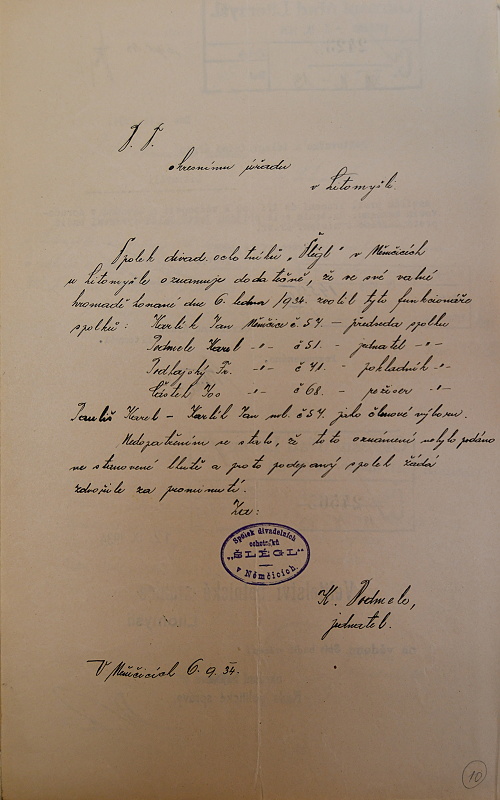 okresnímu úřadu
v Litomyšli.
Spolek divad. ochotníků „Šlégl" v Němčicích
u Litomyšle oznamuje dodatečně, že ve své valné
hromadě konané dne 6. ledna 1934. zvolil tyto funkcionáře
spolku: Karlík Jan Němčice č. 57. – předseda spolku
Podmele Karel -"- č 51. - jednatel -"-
Podhajský Fr. -"- č 41. - pokladník -"-
Částek Jos -"- č 68. - režiser -"-
Pauliš Karel – Karlík Jan ml. č. 57. jako členové výboru.
Nedopatřením se stalo, že toto oznámení nebylo podáno
ve stanovené lhutě a proto podepsaný spolek žádá
zdvořile za prominutí.
Za:
Spolek divadelních
ochotníků
„ŠLÉGL"
v Němčicích.
K. Podmele,
jednatel.
V Němčicích 6. 9. 34.
10